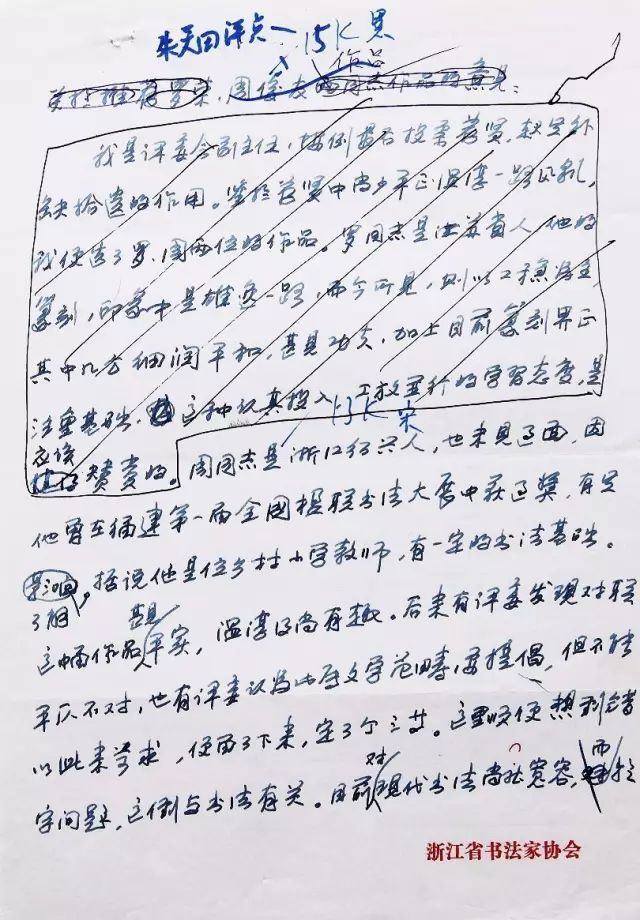 朱关田评点一 15K黑
关于推荐罗某、周俊友两同志作品的意见：
作品
我是评委会副主任，按例是有投票荐贤，起足补
缺拾遗的作用。鉴于荐贤中尚少平正温淳一路风气，
我便选了罗、周两位的作品。罗同志是江苏省人，他的
篆刻，印象中是雄逸一路，而今所见，则以工稳为主，
其中几方细润平和，甚见功夫，加上目前篆刻界正
注重基础，这种认真投入
的学习态度，是
13K宋
应该
赞赏的。周同志是浙江绍兴人，也未见过面，因
他曾在福建第一届全国楹联书法大展中获过奖，有足
影响，据说他是位乡村小学教师，有一定的书法基础。
这幅作品平实，温淳得尚有趣。后来有评委发现对联
甚见
平仄不对，也有评委认为此属文学范畴，要提倡，但不能
以此来苛求，便留了下来，定了个三等。这里顺便想到错
字问题，这倒与书法有关。目前现代书法尚社宽容，
对
而
浙江省书法家协会